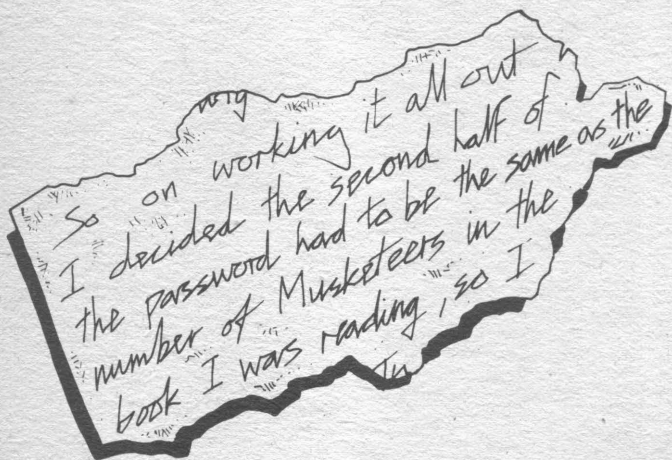 So on working it all out
I decided the second half of
the password had to be the same as the
number of Musketeers in the
book I was reading, so I